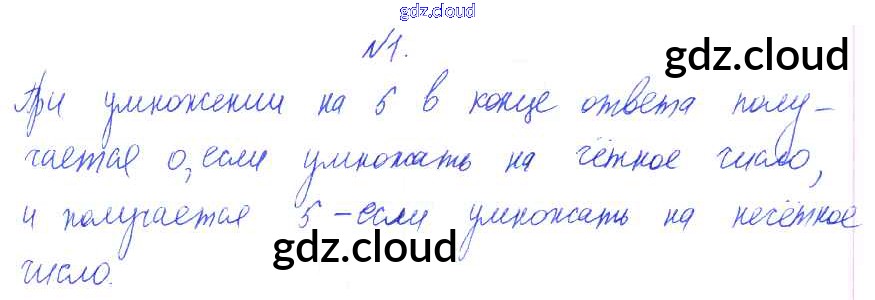 gdz.cloud
№1.
gdz.cloud
При умножении на 5 в конце ответа полу-
чается 0, если умножать на чётное число,
и получается 5 - если умножать на нечётное
gdz.cloud
число.